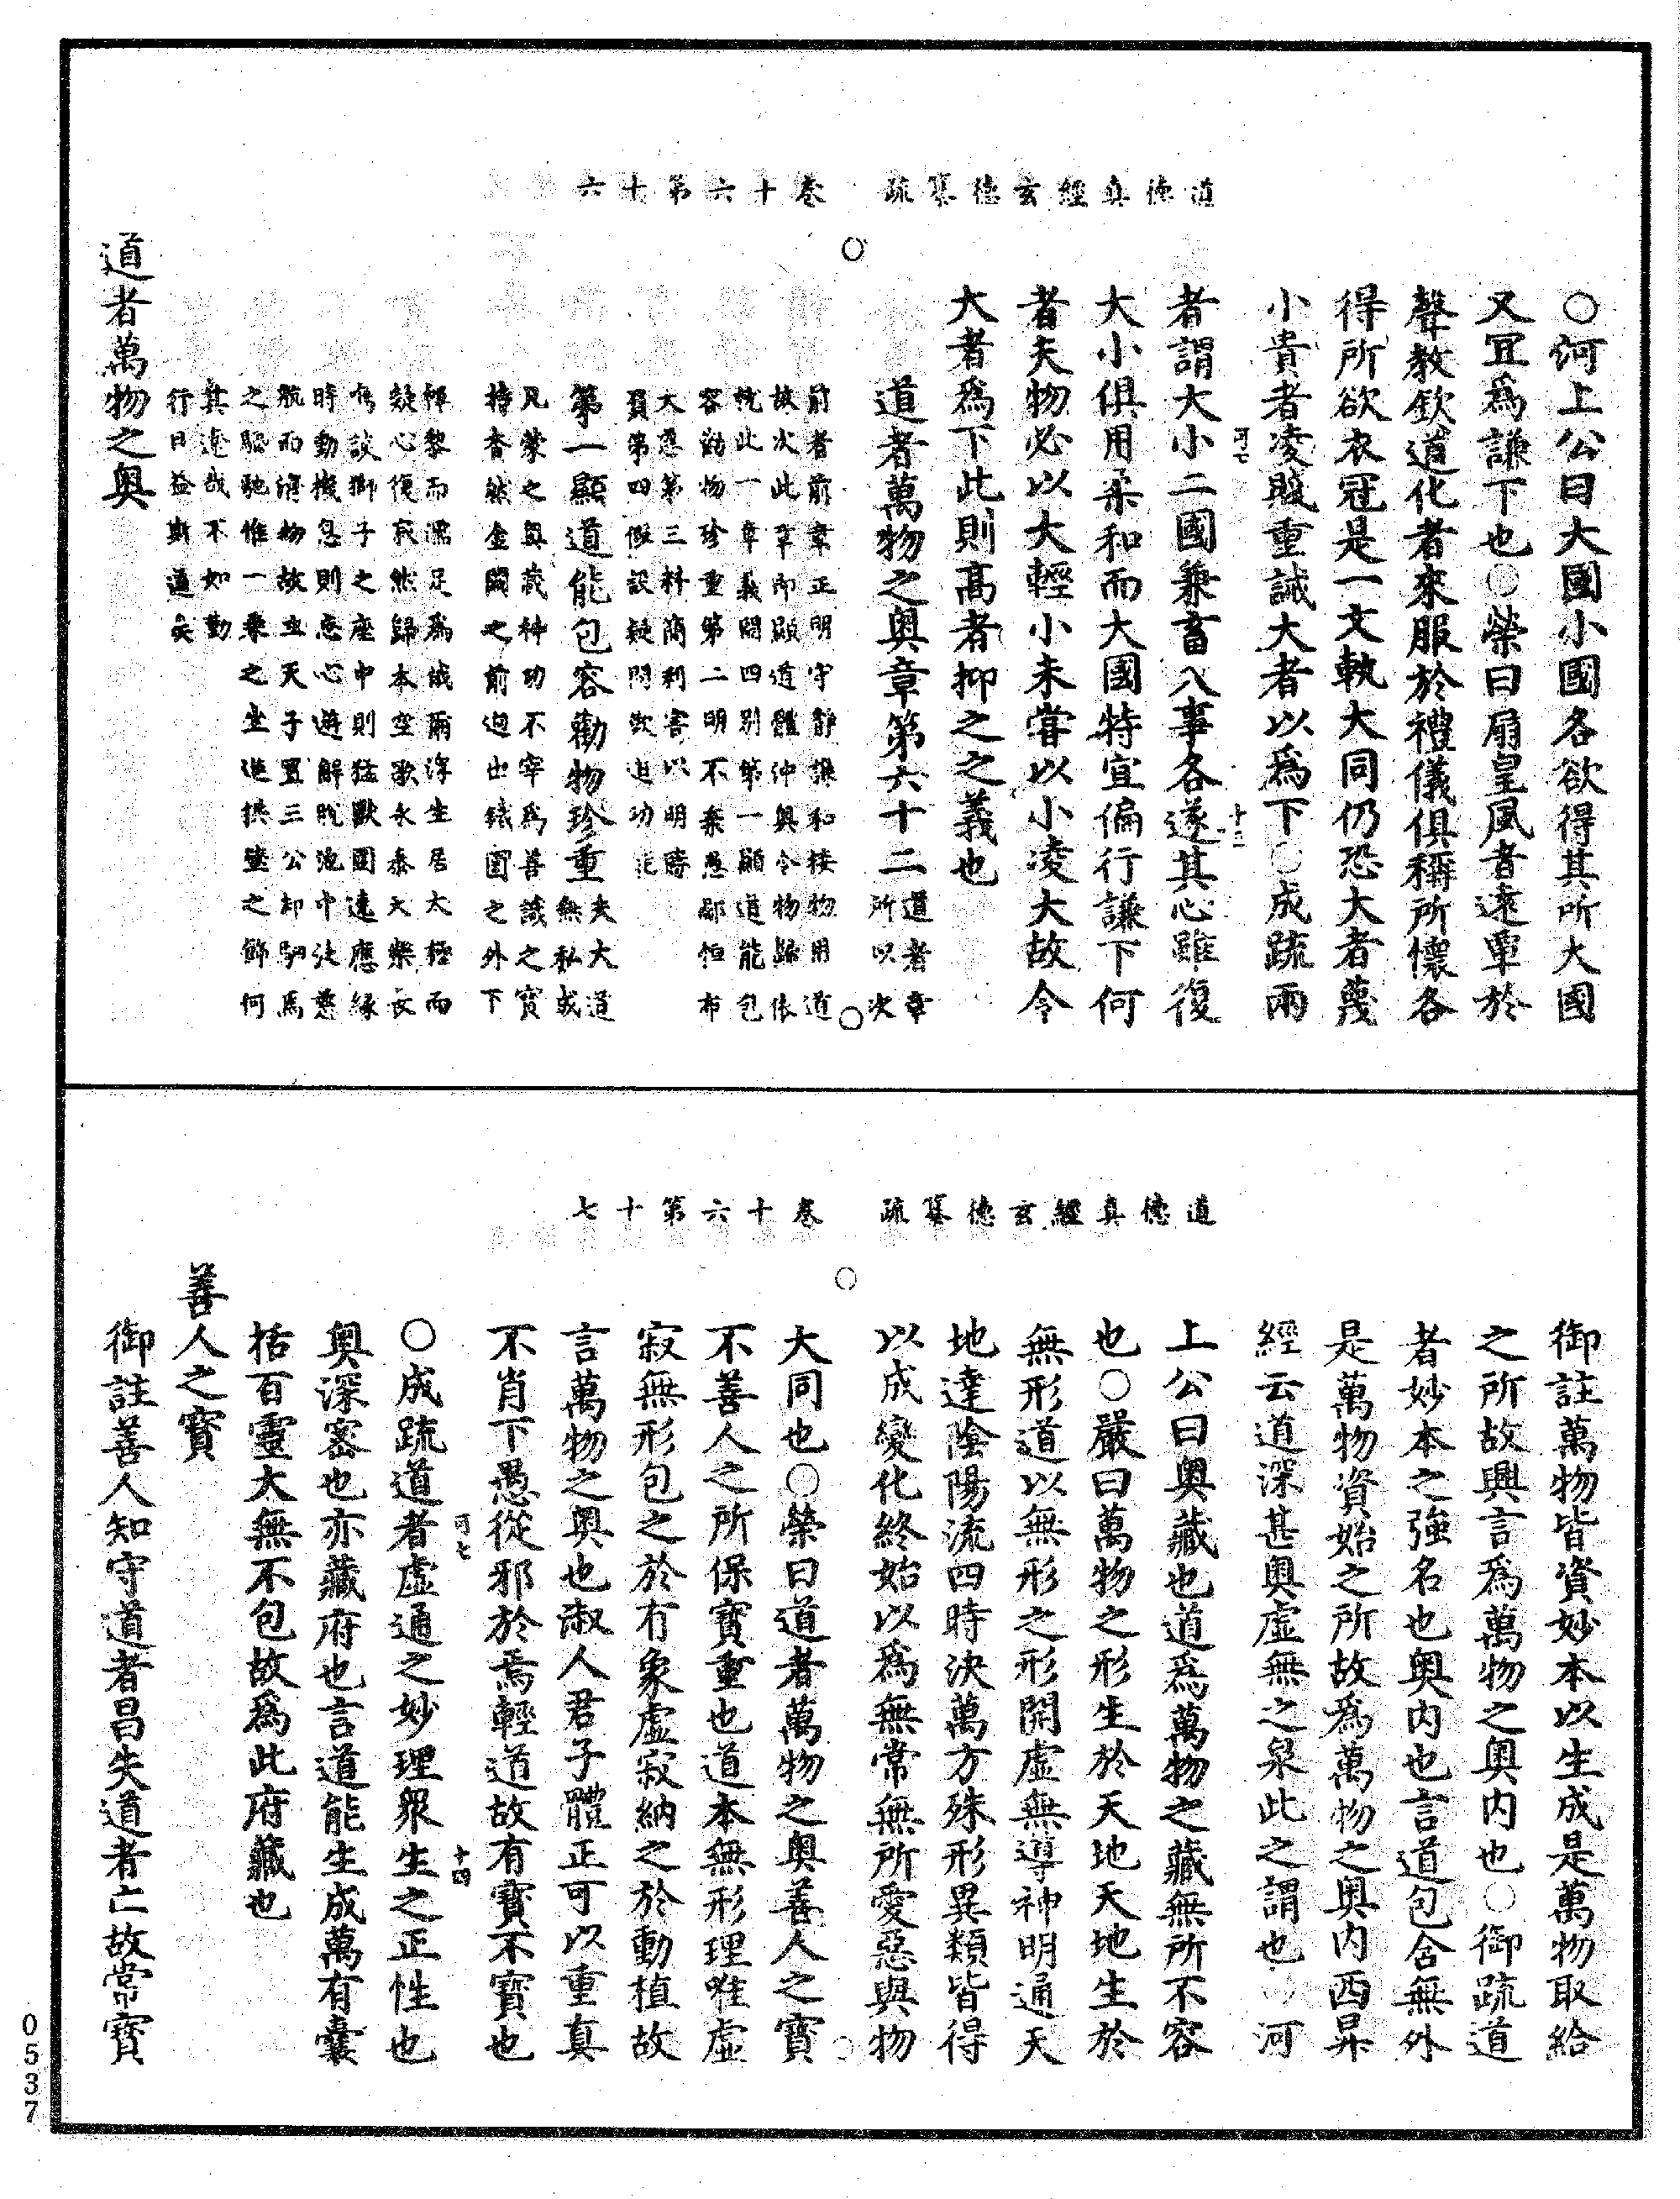 道德真經玄德纂疏　卷十六第十六
○河上公曰大國小國各欲得其所大國
又宜爲謙下也○榮曰扇皇風者遠覃於
聲教欽道化者來服於禮儀俱稱所懷各
得所欲衣冠是一文軌大同仍恐大者蔑
小貴者凌賤重誡大者以爲下○成疏兩
可七　十三
者謂大小二國兼畜入事各遂其心雖復
大小俱用柔和而大國特宜偏行謙下何
者夫物必以大輕小未嘗以小凌大故令
大者爲下此則高者抑之之義也
道者萬物之奥章第六十二道者章所以次
前者前章正明守靜謙和接物用道
故次此章即顯道體沖奥令物歸依
就此一章義開四別第一顯道能包
容勸物珍重第二明不棄愚鄙恒布
大慈第三料簡利害以明勝
負第四假設疑問歎道功能
第一顯道能包容勸物珍重夫大道無私或
凡蒙之奥藏神功不宰為善誠之寶
持杳然金闕之前迥出錄圖之外下
黎而濡足為誡爾浮生居太極而
心復寂然歸本空歌永泰大樂長
談獅子之座中則猛獸園遠應緣
時動機息則恣心遊解脫池中汎慈
航而濟物故立天子置三公却駟馬
之驅馳惟一乘之坐進拱璧之飾何
其遠哉不如勤
行日益斯道矣
道者萬物之奥
道德真經玄德纂疏　卷十六第十七
御註萬物皆資妙本以生成是萬物取給
之所故興言爲萬物之奥内也○御疏道
者妙本之強名也奥内也言道包含無外
是萬物資始之所故爲萬物之奥内西昇
經云道深甚奥虛無之泉此之謂也○河
上公曰奥藏也道爲萬物之藏無所不容
也○嚴曰萬物之形生於天地天地生於
無形道以無形之形開虛無導神明通天
地達陰陽流四時決萬方殊形異類皆得
以成變化終始以爲無常無所愛惡與物
大同也○榮曰道者萬物之奥善人之寶
不善人之所保寶重也道本無形理唯虛
寂無形包之於有象虛寂納之於動植故
言萬物之奥也淑人君子體正可以重真
不肖下愚從邪於焉輕道故有寶不寶也
可七　十四
○成疏道者虛通之妙理衆生之正性也
奥深密也亦藏府也言道能生成萬有囊
括百靈大無不包故爲此府藏也
善人之寶
御註善人知守道者昌失道者亡故常寶
0537